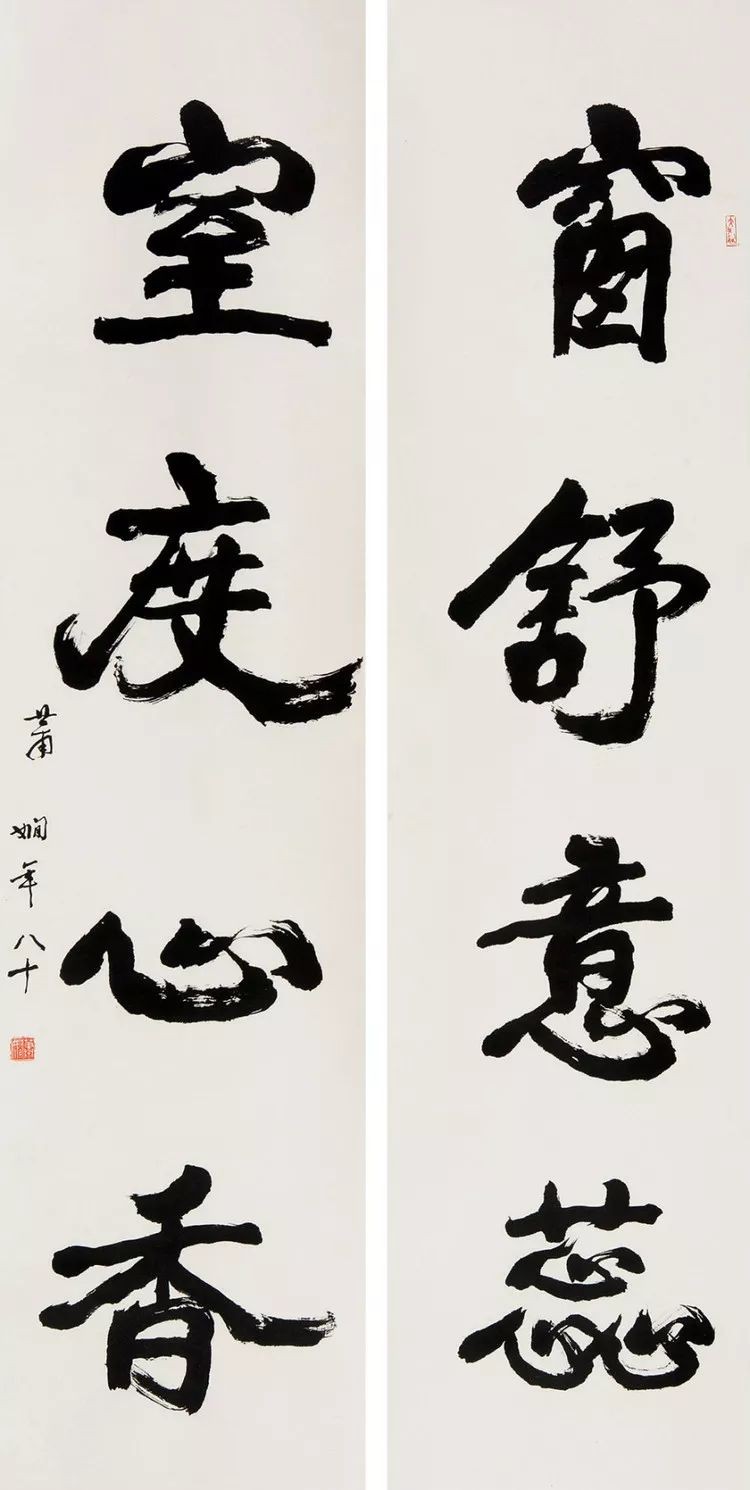 窗舒意蕊
室度心香
蕭嫻年八十